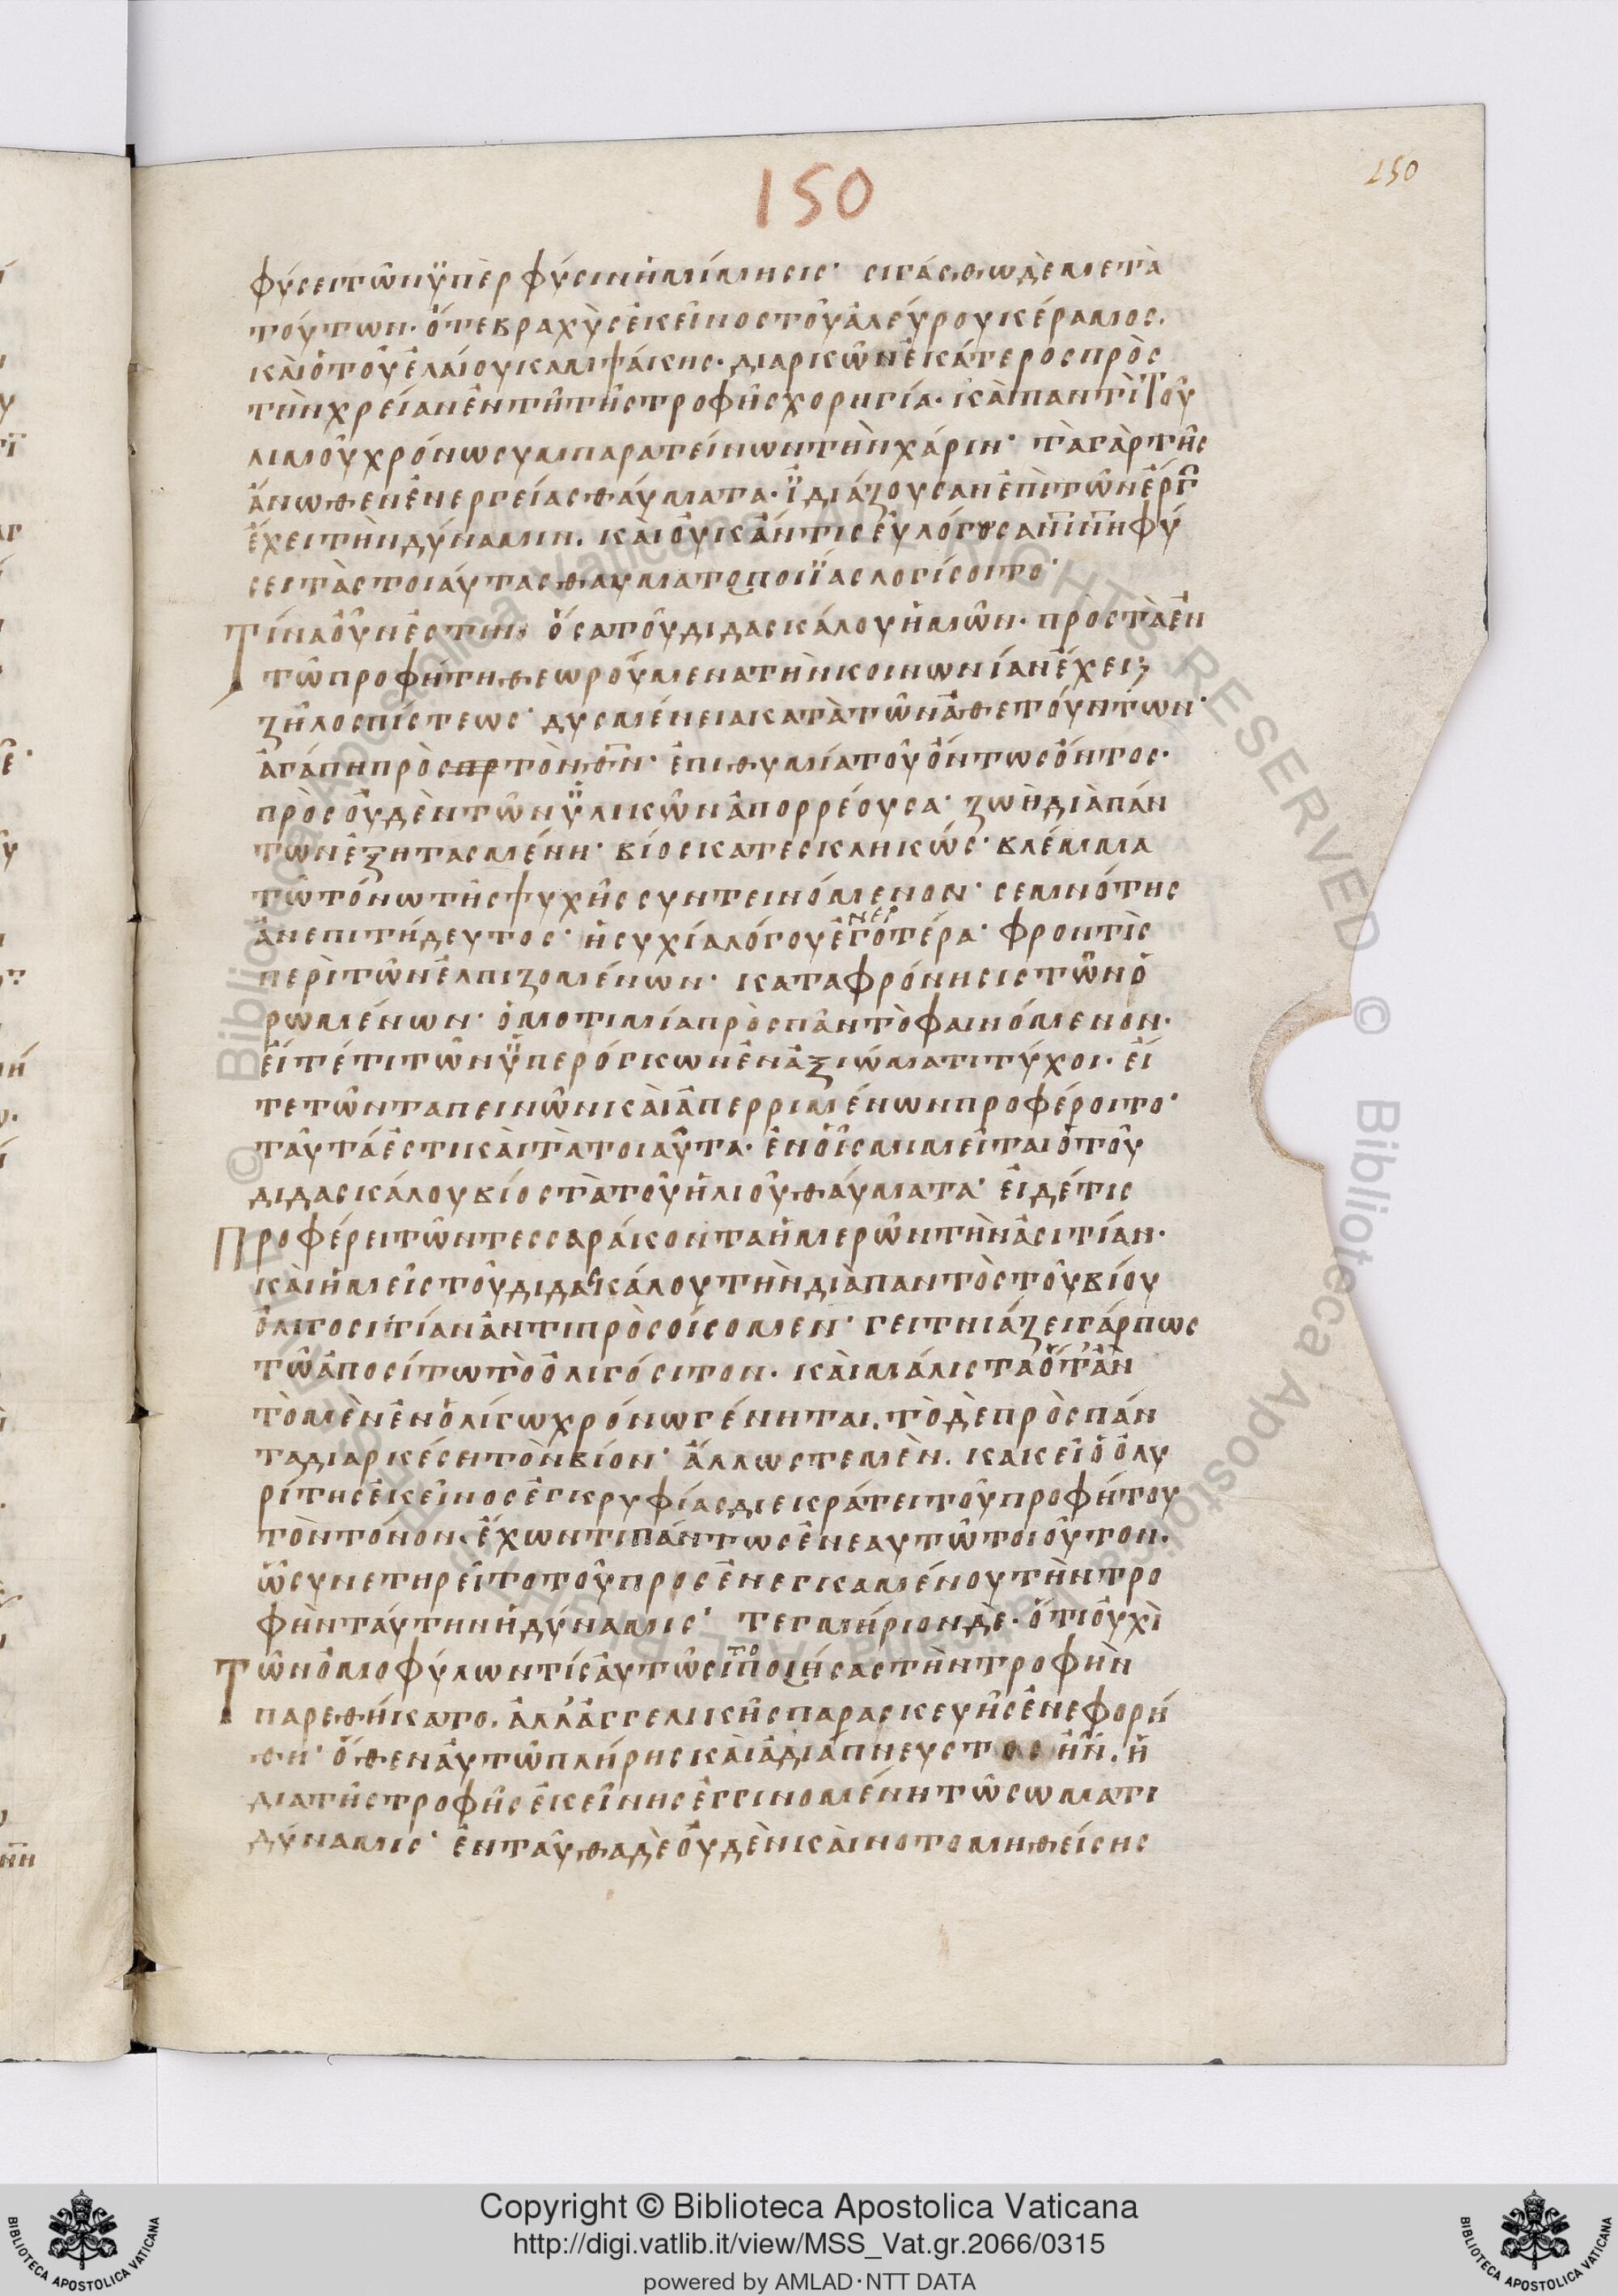 150
150
φύσει τῶν ὑπὲρ φύσιν ἡ μίμησις· σιγάσθω δὲ μετὰ
τούτων· ὅτε βραχὺς ἐκεῖνος τοῦ ἀλεύρου κέραμος.
καὶ ὁ τοῦ ἐλαίου καμψάκης· διαρκῶν ἑκάτερος πρὸς
τὴν χρείαν ἐν τῆ τῆς τροφῆς χορηγία· καὶ παντὶ τοῦ
λιμοῦ χρόνω συμπαρατείνων τὴν χάριν· τὰ γὰρ τῆς
ἄνωθεν ἐνεργείας θαύματα· ϊδιάζουσαν ἐπὶ τῶν ἔργ
ἔχει τὴν δύναμιν. καὶ οὐκ ἄν τις εὐλόγως ἀπῑ π̄η φύ
σει τὰς τοιαύτας θαυματοποιΐας λογίσοιτο·
Τίνα οὖν ἐστιν, ὅσα τοῦ διδασκάλου ἡμῶν· πρὸς τὰ ἐν
τῶ προφήτη θεωρούμενα τὴν κοινωνίαν ἔχει;
ζῆλος πίστεως· δυσμένεια κατὰ τῶν ἀθετούντων·
ἀγάπη πρὸς πρ τὸν θν· ἐπιθυμία τοῦ ὄντως ὄντος·
πρὸς οὐδὲν τῶν ὑλικῶν ἀπορρέουσα· ζωὴ διὰ πάν
των ἐξητασμένη· βίος κατεσκληκώς· βλέμμα
τῶ τόνω τῆς ψυχῆς συντεινόμενον· σεμνότης
ἀνεπιτήδευτος· ἡσυχία λόγου ἐνεργοτέρα· φροντὶς
περὶ τῶν ἐλπιζομένων· καταφρόνησις τῶν ὁ
ρωμένων· ὁμοτιμία πρὸς πᾶν τὸ φαινόμενον·
εἴτέ τι τῶν ὑπερόγκων ἐν ἀξιώματι τύχοι· εἴ
τε τῶν ταπεινῶν καὶ ἀπερριμένων προφέροιτο·
ταῦτά ἐστι καὶ τὰ τοιαῦτα· ἐν οἷς μιμεῖται ὁ τοῦ
διδασκάλου βίος τὰ τοῦ ἡλιοῦ θαύματα· εἰ δέ τις
Προφέρει τῶν τεσσαράκοντα ἡμερῶν τὴν ἀσιτίαν·
καὶ ἡμεῖς τοῦ διδασκάλου τὴν διὰ παντὸς τοῦ βίου
ὀλιγοσιτίαν ἀντιπρὸσοίσομεν· γειτνιάζει γάρ πως
τῶ ἀποσίτω τὸ ὀλιγόσιτον. καὶ μάλιστα ὅτ' ἂν
τὸ μὲν ἐν ὀλίγω χρόνω γένηται. τὸ δὲ πρὸς πάν
τα διαρκέση τὸν βίον· ἄλλως τε μὲν. κακεῖ ὁ ὀλυ
ρίτης ἐκεῖνος ἐγκρυφίας διεκράτει τοῦ προφήτου
τὸν τόνον· ἔχων τι πάντως ἐν εαυτῶ τοιοῦτον.
ὧ συνετηρεῖτο τοῦ προσἐνεγκαμένου τὴν τρο
φὴν ταύτην ἡ δύναμις· τεγμήριον δὲ· ὅτι οὐχὶ
Τῶν ὁμοφύλων τίς αὐτῶ σιτοποιήσας τὴν τροφὴν
παρεθήκατο. ἀλλ' ἀγγελικῆς παρασκευῆς ἐνεφορή
θη· ὅθεν αὐτῶ πλήρης καὶ ἀδιάπνευστος ἦν. ἡ
διὰ τῆς τροφῆς ἐκείνης ἐγγινομένη τῶ σωματι
δύναμις· ἐνταῦθα δὲ οὐδὲν καὶνοτομηθείσης
Copyright © Biblioteca Apostolica Vaticana
http://digi.vatlib.it/view/MSS_Vat.gr.2066/0315
powered by AMLAD·NTT DATA